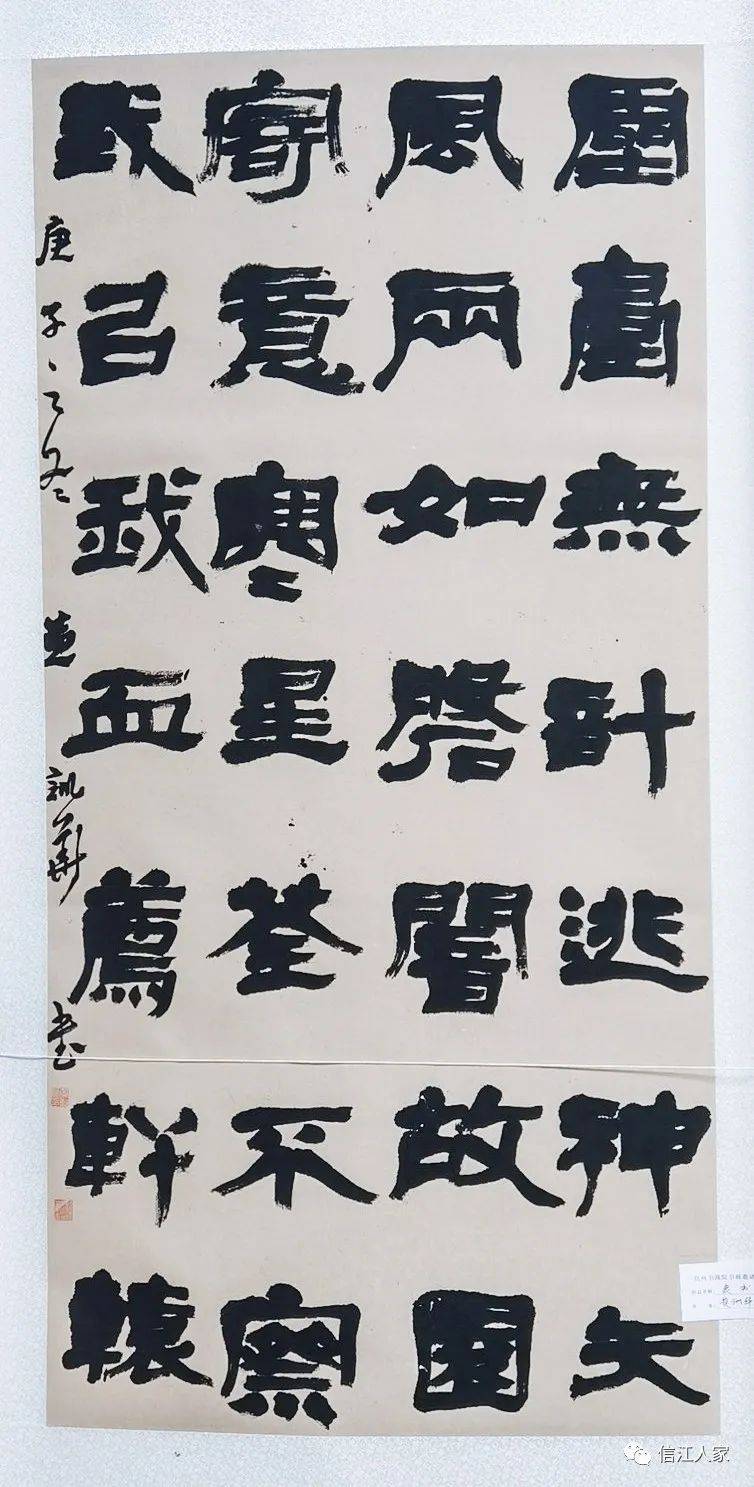 靈臺無計逃神矢
風雨如磐闇故園
寄意寒星荃不察
我㠯我血薦軒轅
庚子之冬 華書
信江人家